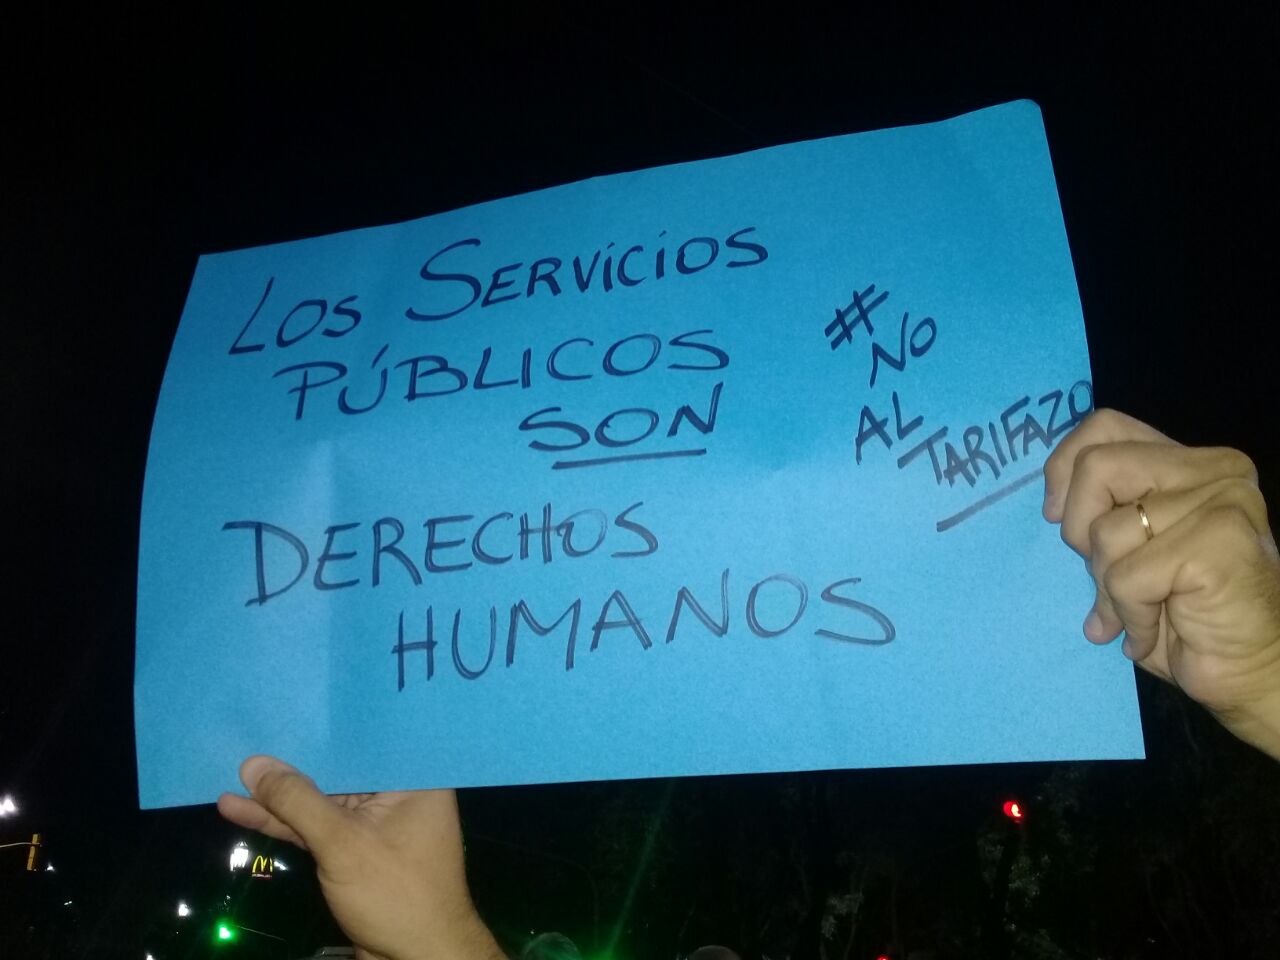 Los Servicios
PÚBLICOS
SON
DERECHOS
HUMANOS
#
NO
AL
TARIFAZO
M